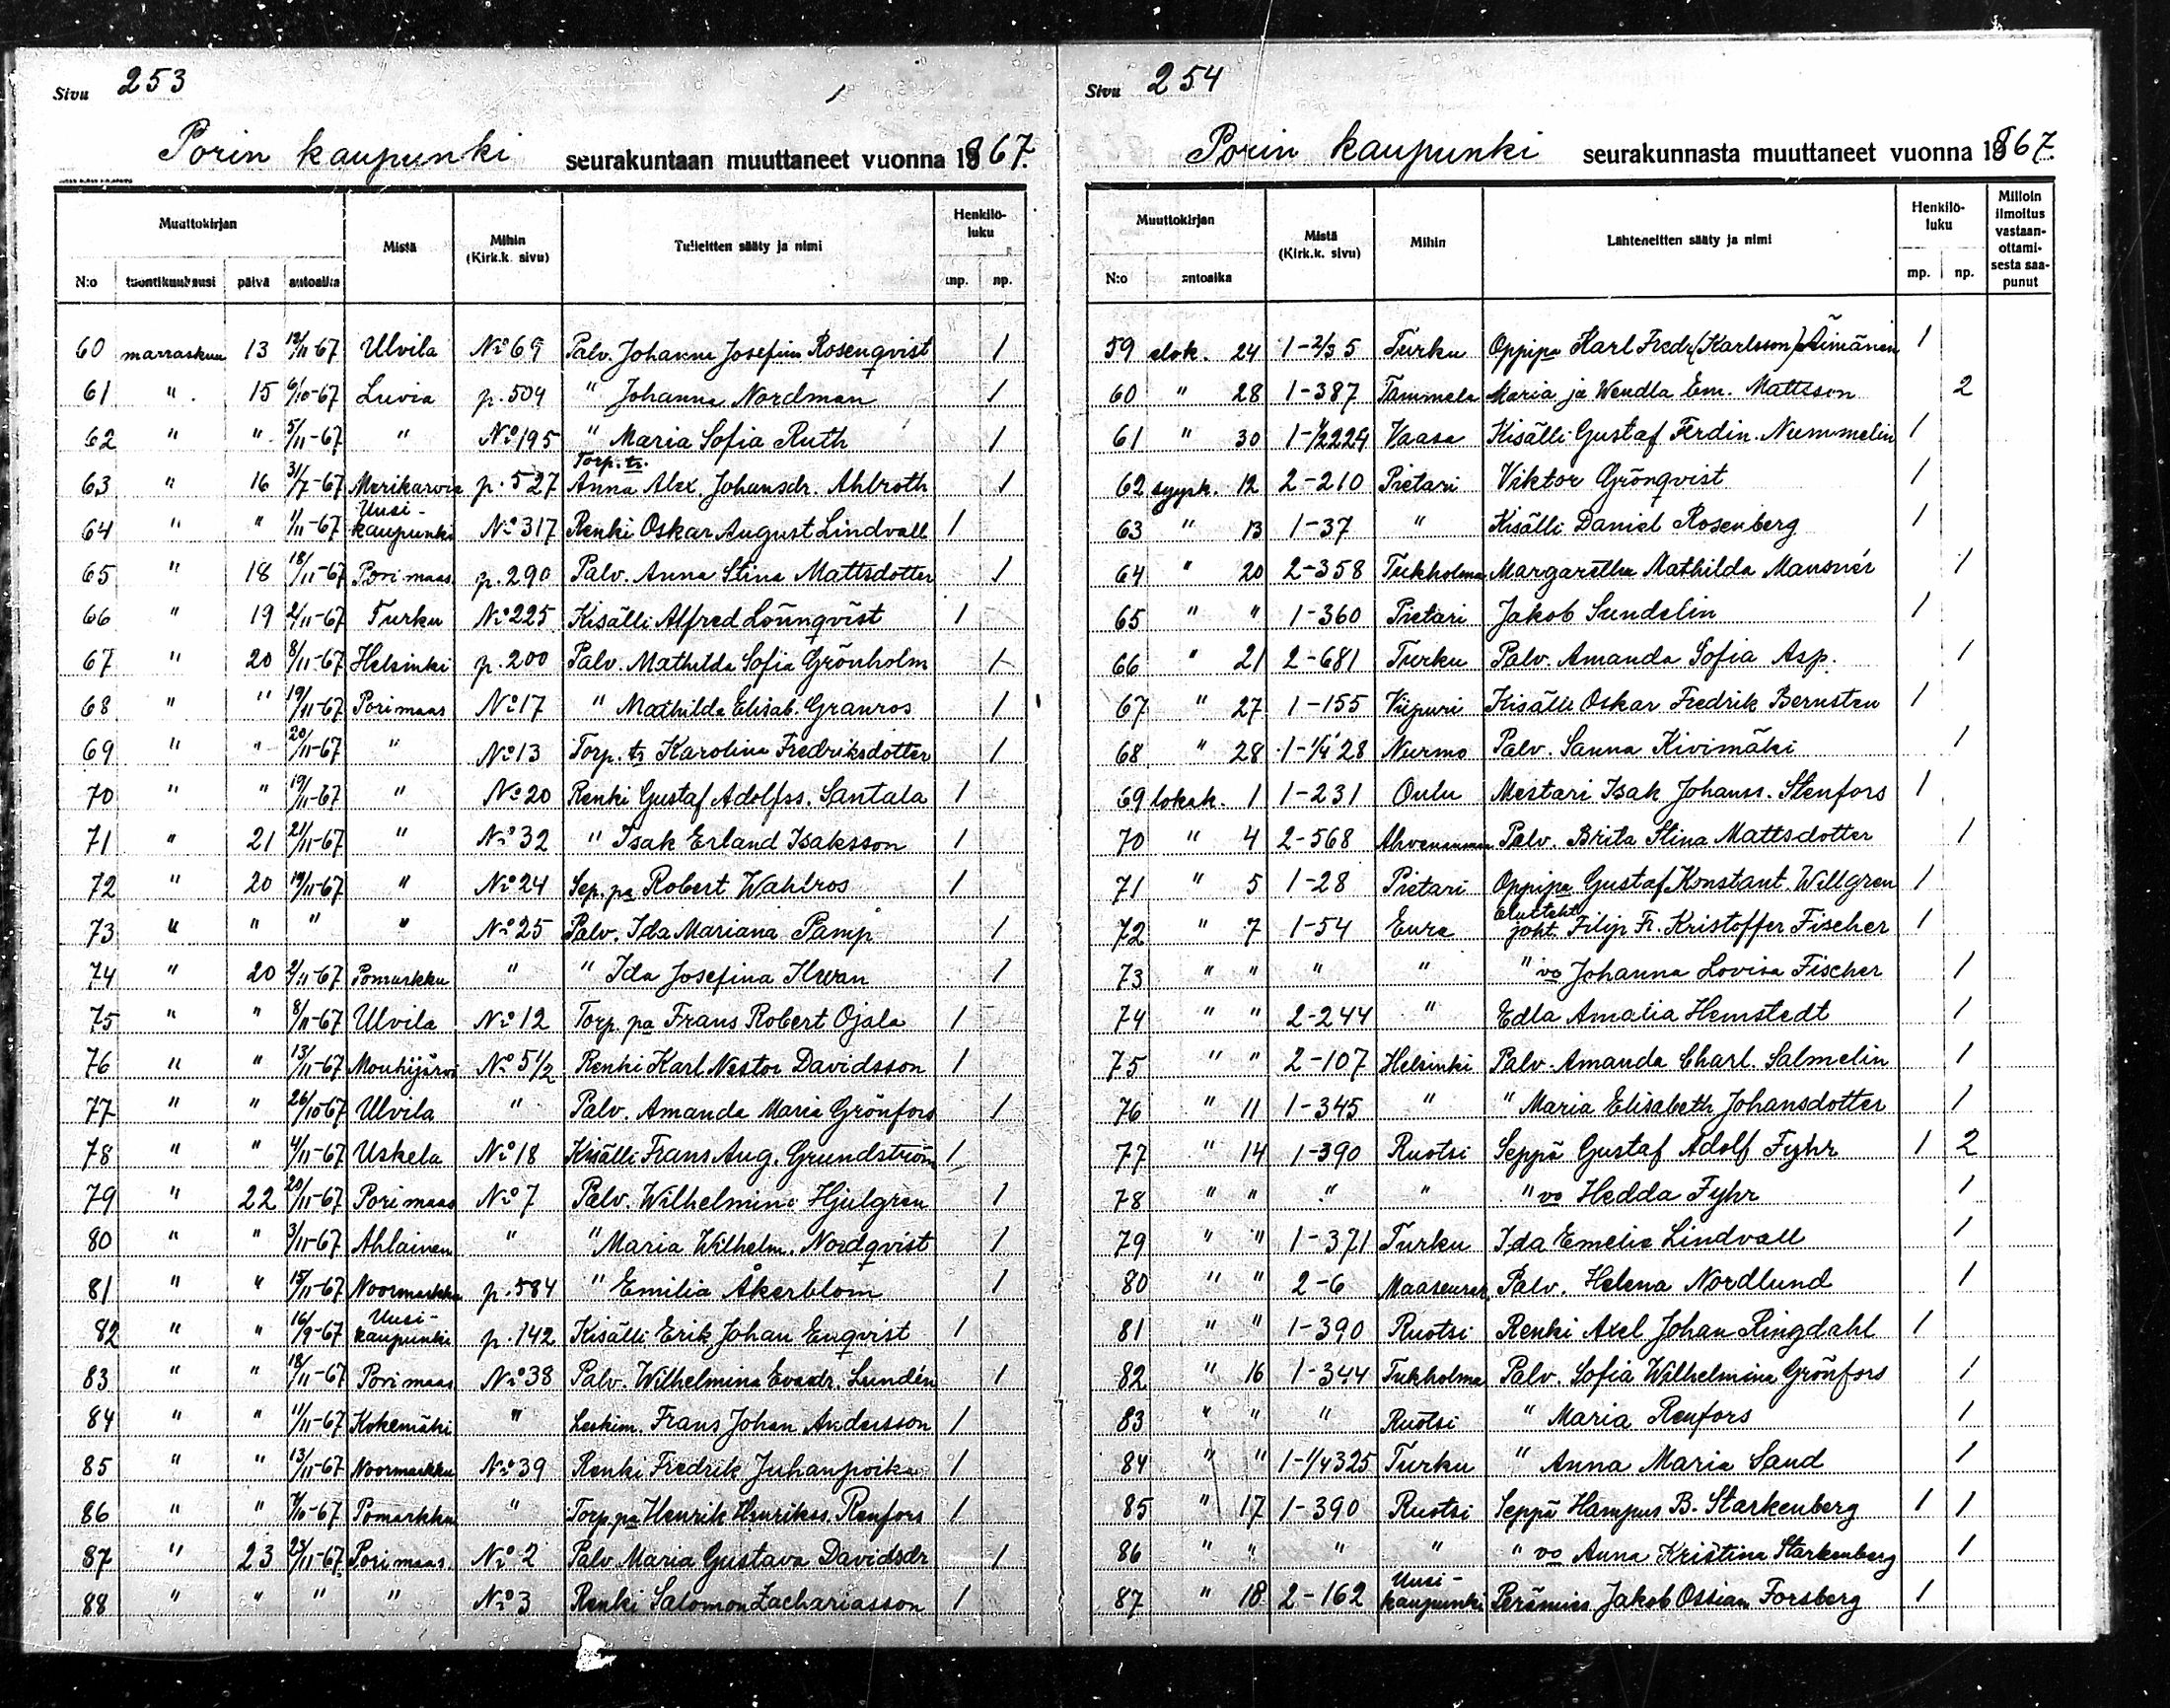 Sivu 253
Porin kaupunki seurakuntaan muuttaneet vuonna 1867.
Muuttokirjan Mistä Mihin (Kirk.k. sivu) Tulleitten sääty ja nimi Henkilö-luku
N:o tuontikuukausi päivä antoaika mp. np.
60 marraskuu 13 12/11-67 Ulvila No 69 Palv. Johanna Josefina Rosenqvist 1
61 " 15 6/10-67 Luvia p. 509 " Johanna Nordman 1
62 " " 5/11-67 " No 195 " Maria Sofia Ruth 1
63 " 16 31/7-67 Merikarvia p. 527 Torp. tr. Anna Alex. Johansdr. Ahlroth 1
64 " " 1/11-67 Uusi-kaupunki No 317 Renki Oskar August Lindvall 1
65 " 18 18/11-67 Pori maas. p. 290 Palv. Anna Stina Mattsdotter 1
66 " 19 2/11-67 Turku No 225 Kisälli Alfred Lönnqvist 1
67 " 20 8/11-67 Helsinki p. 200 Palv. Mathilda Sofia Grönholm 1
68 " " 19/11-67 Pori maas No 17 " Mathilda Elisab. Granros 1
69 " " 20/11-67 " No 13 Torp. tr Karolina Fredriksdotter 1
70 " " 19/11-67 " No 20 Renki Gustaf Adolfss. Santala 1
71 " 21 21/11-67 " No 32 " Isak Erland Isaksson 1
72 " 20 19/11-67 " No 24 Sep. pa Robert Wahlros 1
73 " " " " No 25 Palv. Ida Mariana Pamp 1
74 " 20 2/11-67 Pomarkku " " Ida Josefina Ilvan 1
75 " " 8/11-67 Ulvila No 12 Torp. pa Frans Robert Ojala 1
76 " " 13/11-67 Mouhijärvi No 5 1/2 Renki Karl Nestor Davidsson 1
77 " " 26/10-67 Ulvila " Palv. Amanda Maria Grönfors 1
78 " " 4/11-67 Uskela No 18 Kisälli Frans Aug. Grundström 1
79 " 22 20/11-67 Pori maas No 7 Palv. Wilhelmina Hjulgren 1
80 " " 3/11-67 Ahlainen " " Maria Wilhelm. Nordqvist 1
81 " " 15/11-67 Noormarkku p. 584 " Emilia Åkerblom 1
82 " " 16/9-67 Uusi-kaupunki p. 142 Kisälli Erik Johan Enqvist 1
83 " " 18/11-67 Pori maas No 38 Palv. Wilhelmina Evasdr. Lundén 1
84 " " 11/11-67 Kokemäki " Leskim. Frans Johan Andersson 1
85 " " 13/11-67 Noormarkku No 39 Renki Fredrik Juhanpoika 1
86 " " /10-67 Pomarkku " Torp. pa Henrik Henrikss. Renfors 1
87 " 23 23/11-67 Pori maas. No 2 Palv Maria Gustava Davidsdr 1
88 " " " " No 3 Renki Salomon Zachariasson 1
Sivu 254
Porin kaupunki seurakunnasta muuttaneet vuonna 1867.
Muuttokirjan Mistä (Kirk.k. sivu) Mihin Lähteneitten sääty ja nimi Henkilö-luku Milloin ilmoitus vastaan-ottami-sesta saa-punut
N:o antoaika mp. np.
59 elok. 24 1-2/3 5 Turku Oppipa Karl Fredr (Karlsson) Äimänen 1
60 " 28 1-387 Tammela Maria ja Wendla Em. Mattsson 2
61 " 30 1-1/2224 Vaasa Kisälli Gustaf Ferdin. Nummelin 1
62 syysk. 12 2-210 Pietari Viktor Grönqvist 1
63 " 13 1-37 " Kisälli Daniel Rosenberg 1
64 " 20 2-358 Tukholma Margaretha Mathilda Mansnér 1
65 " " 1-360 Pietari Jakob Sundelin 1
66 " 21 2-681 Turku Palv. Amanda Sofia Asp. 1
67 " 27 1-155 Viipuri Kisälli Oskar Fredrik Bernsten 1
68 " 28 1-1/4 28 Nurmo Palv. Sanna Kivimäki 1
69 lokak. 1 1-231 Oulu Mestari Isak Johanss. Stenfors 1
70 " 4 2-568 Ahvenanmaa Palv. Brita Stina Mattsdotter 1
71 " 5 1-28 Pietari Oppipa Gustaf Konstant. Willgren 1
72 " 7 1-54 Eura joht. Filip Fr. Kristoffer Fischer 1
73 " " " " " vo Johanna Lovisa Fischer 1
74 " " 2-244 " Edla Amalia Hemstedt 1
75 " " 2-107 Helsinki Palv. Amanda Charl. Salmelin 1
76 " 11 1-345 " " Maria Elisabeth Johansdotter 1
77 " 14 1-390 Ruotsi Seppä Gustaf Adolf Fyhr 1 2
78 " " " " " vo Hedda Fyhr 1
79 " " 1-371 Turku Ida Emelie Lindvall 1
80 " " 2-6 Maaseurak. Palv. Helena Nordlund 1
81 " " 1-390 Ruotsi Renki Axel Johan Ringdahl 1
82 " 16 1-344 Tukholma Palv. Sofia Wilhelmina Grönfors 1
83 " " " Ruotsi " Maria Renfors 1
84 " " 1-1/4325 Turku " Anna Maria Sand 1
85 " 17 1-390 Ruotsi Seppä Hampus B. Starkenberg 1 1
86 " " " " " vo Anna Kristina Starkenberg 1
87 " 18 2-162 Uusi-kaupunki Perämies Jakob Ossian Forsberg 1